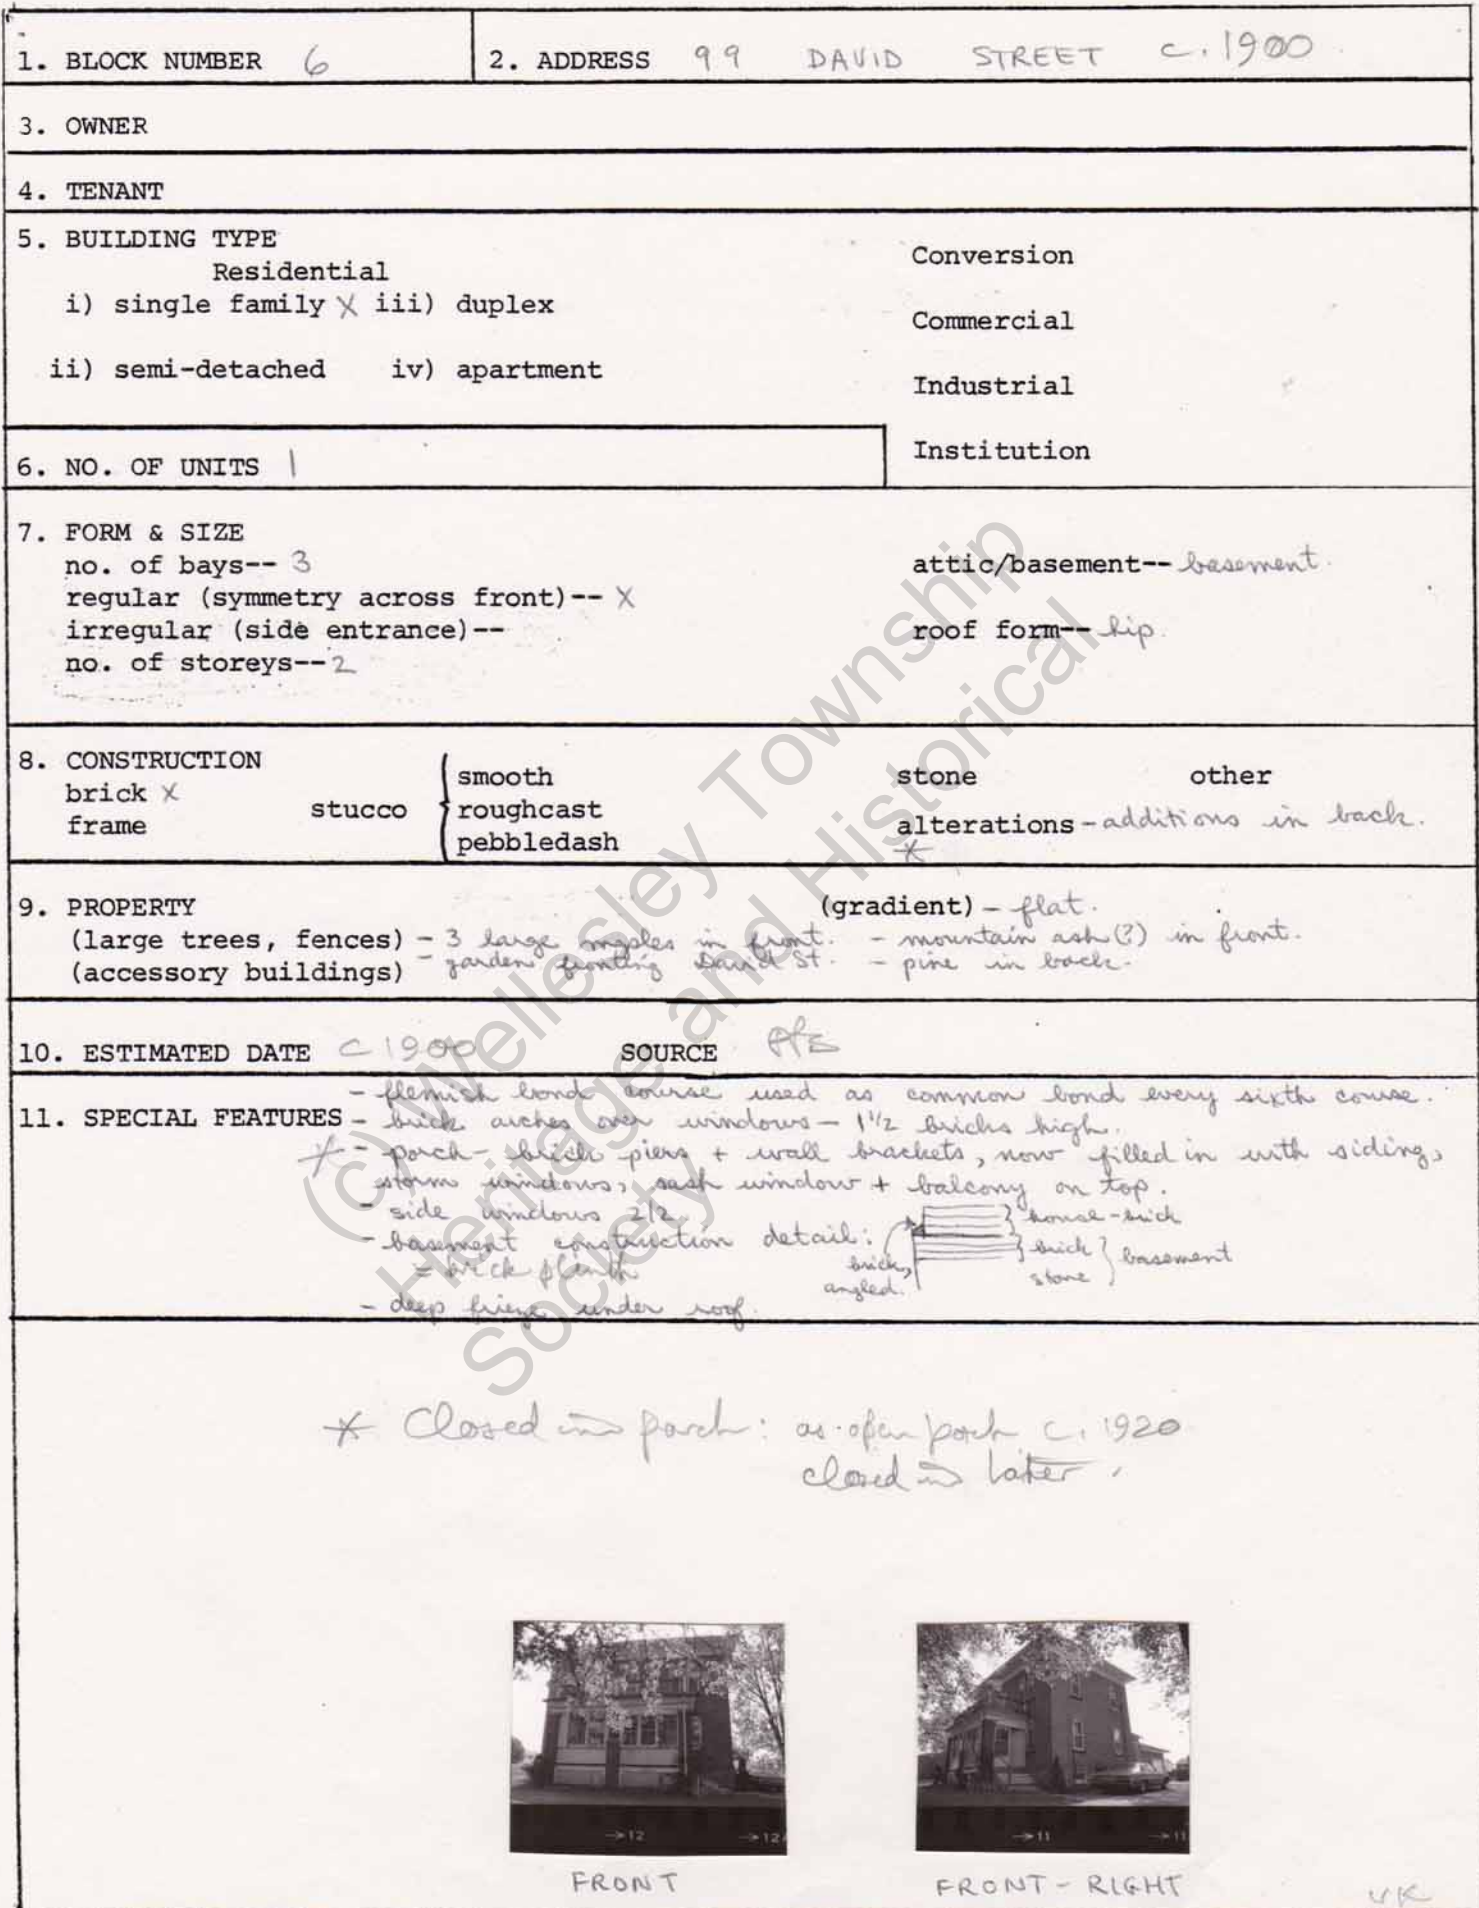 1. BLOCK NUMBER 6
2. ADDRESS 99 DAVID STREET c. 1900
3. OWNER
4. TENANT
5. BUILDING TYPE
Residential
i) single family X iii) duplex
ii) semi-detached iv) apartment
Conversion
Commercial
Industrial
Institution
6. NO. OF UNITS 1
7. FORM & SIZE
no. of bays-- 3
regular (symmetry across front)-- X
irregular (side entrance)--
no. of storeys--2
attic/basement-- basement.
roof form-- hip.
8. CONSTRUCTION
brick X
frame
stucco
smooth
roughcast
pebbledash
stone other
alterations - additions in back.
*
9. PROPERTY (gradient) - flat.
(large trees, fences) - 3 large maples in front. - mountain ash (?) in front.
(accessory buildings) - garden fronting David St. - pine in back.
10. ESTIMATED DATE c 1900 SOURCE
- flemish bond course used as common bond every sixth course.
11. SPECIAL FEATURES - brick arches over windows - 1 1/2 bricks high.
* - porch - brick piers + wall brackets, now filled in with siding,
storm windows, sash window + balcony on top.
- side windows 2/2
- basement construction detail:
= brick plinth
brick, angled.
house - brick
brick
stone
basement
- deep frieze under roof.
* Closed in porch: as open porch c. 1920
closed in later.
→12 →12A
→11 →11
FRONT
FRONT - RIGHT
VK
(c) Wellesley Township
Heritage and Historical
Society